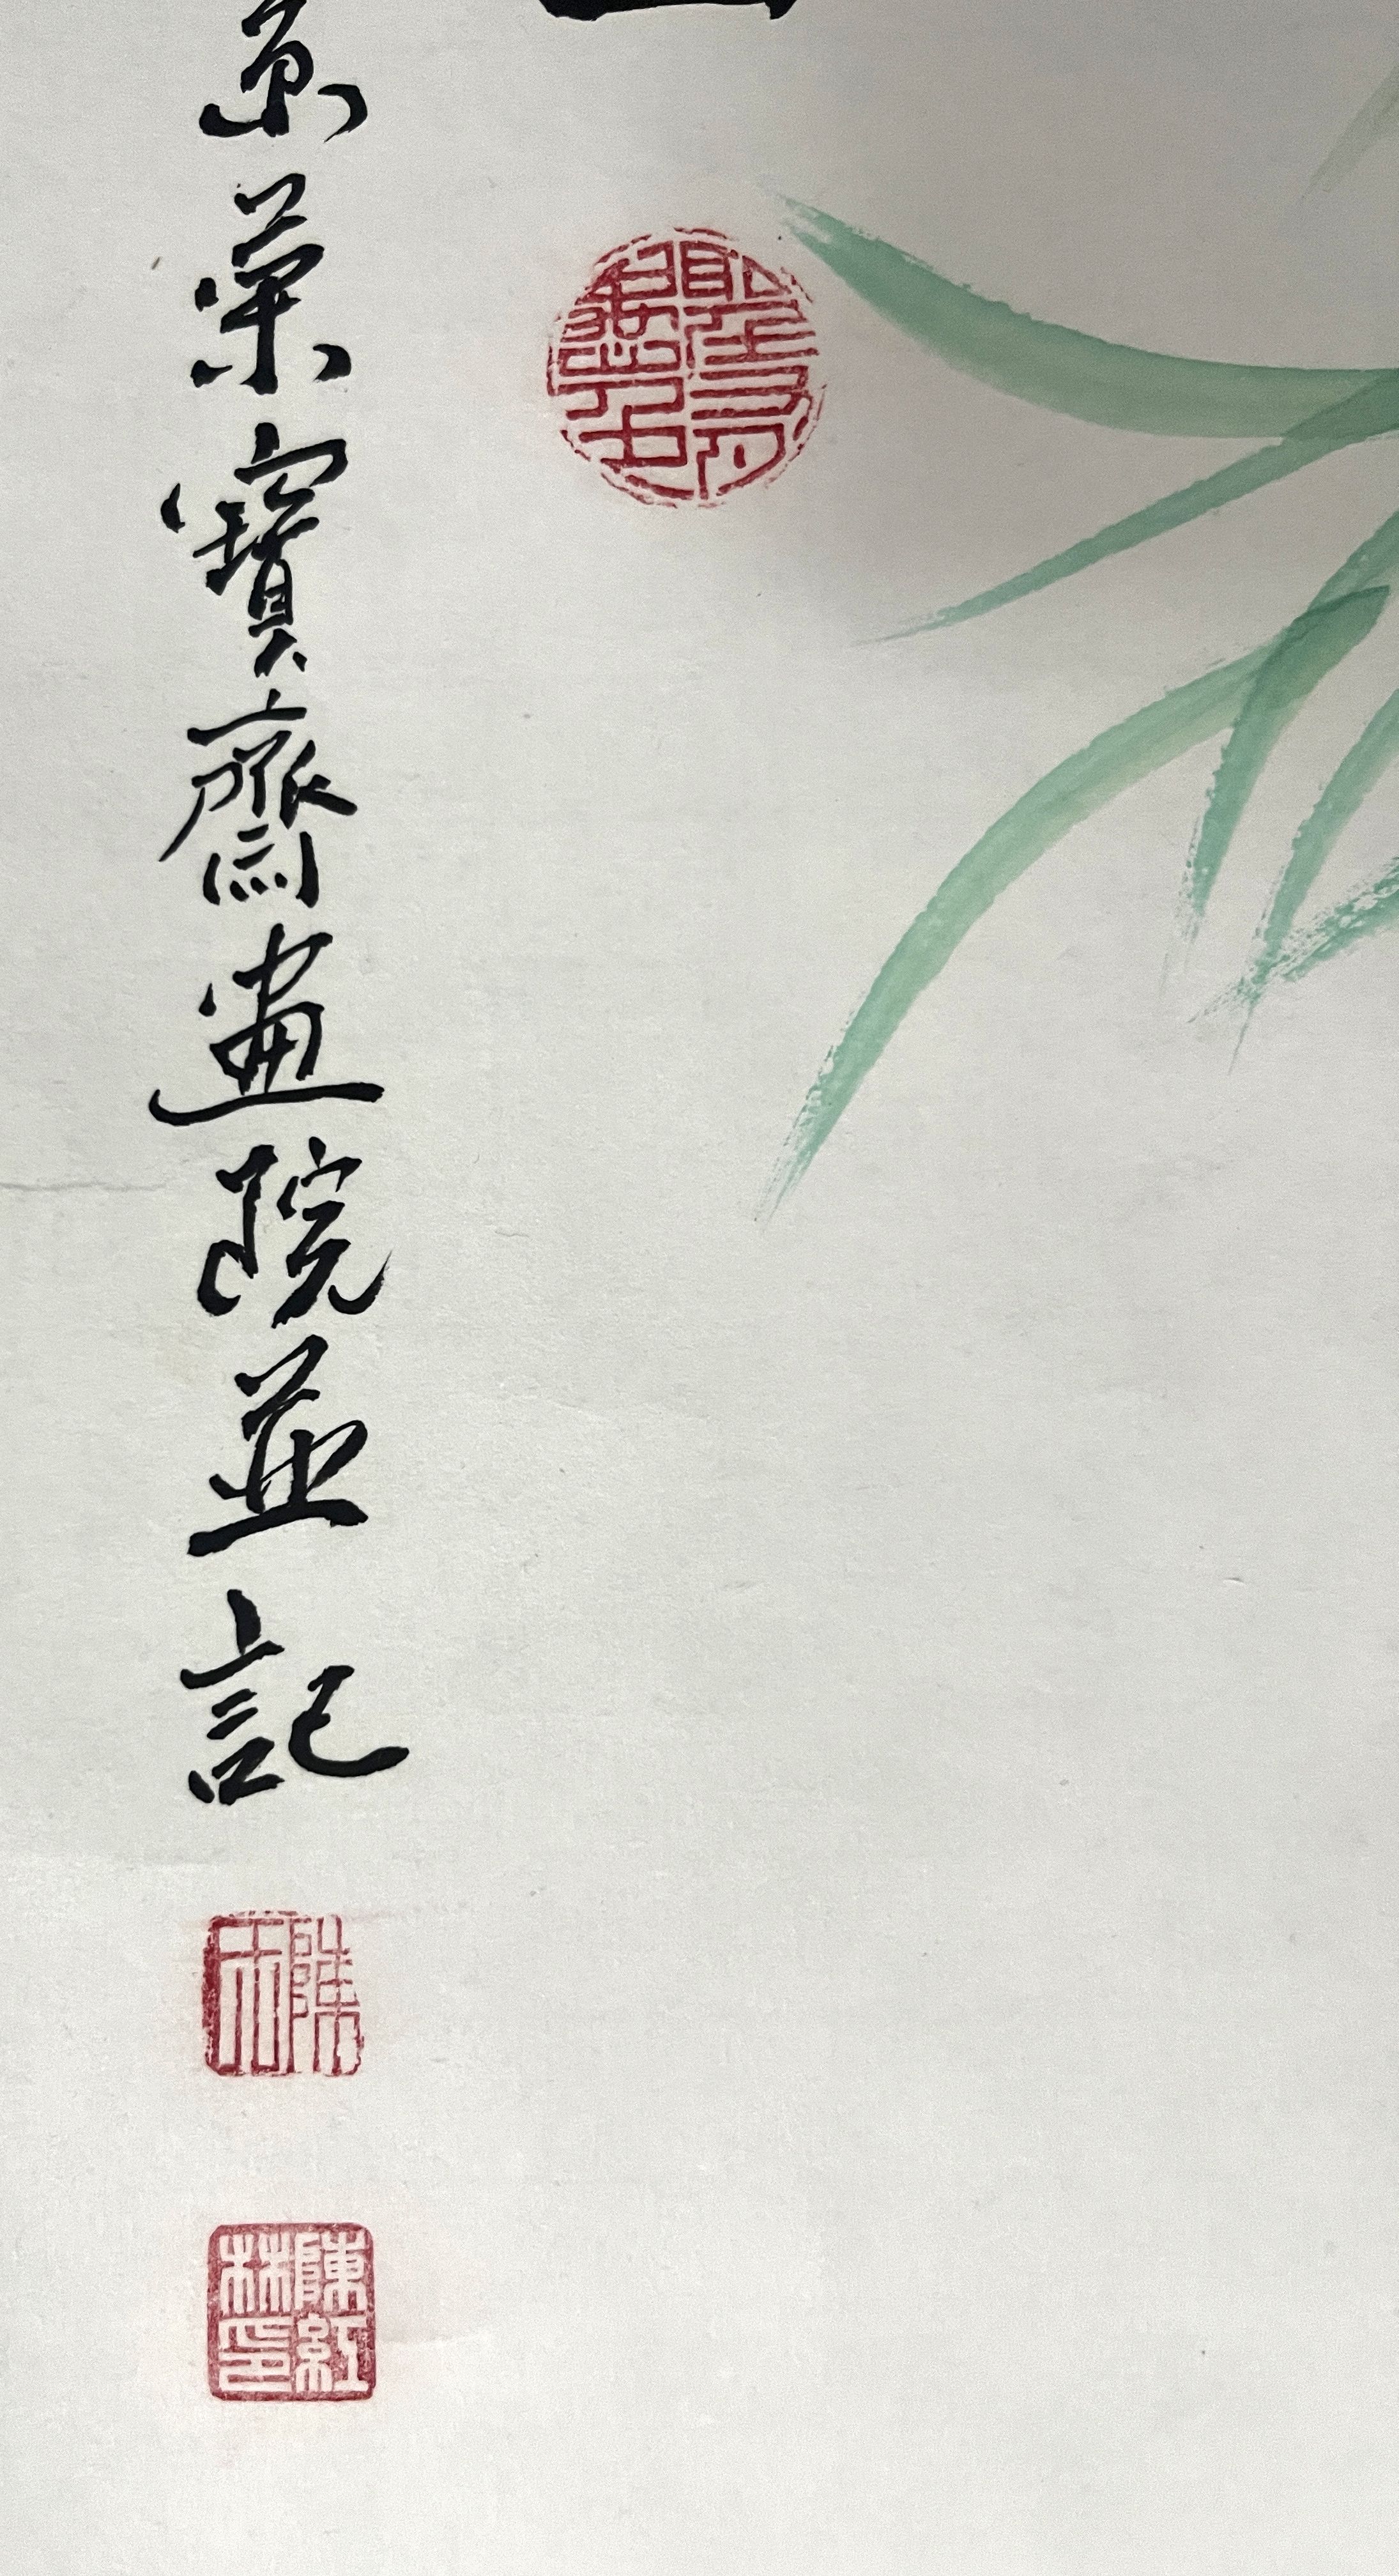 京榮寶齋畫院並記
陳雨
陳紅林印